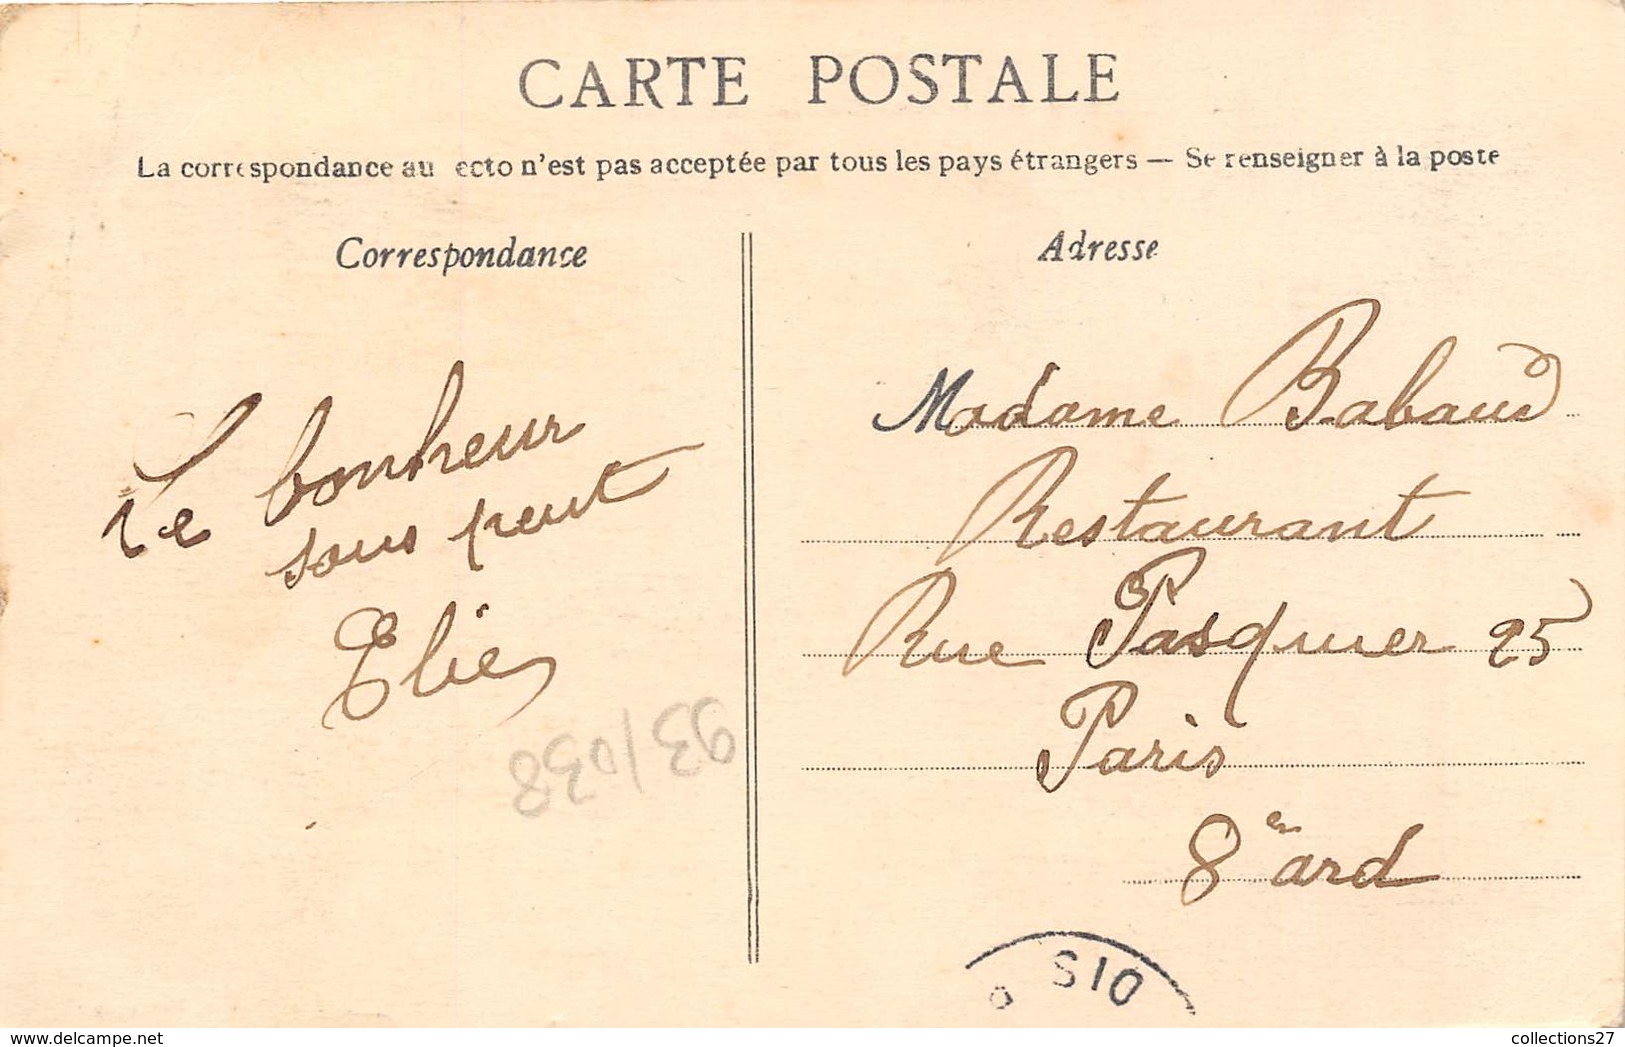 CARTE POSTALE
La correspondance au ecto n'est pas acceptée par tous les pays étrangers — Se renseigner à la poste
Correspondance
Le bonheur
sous peut
Elie
93/038
Adresse
Madame Babaud
Restaurant
Rue Pasquier 25
Paris
8en ard
SIO
collections27